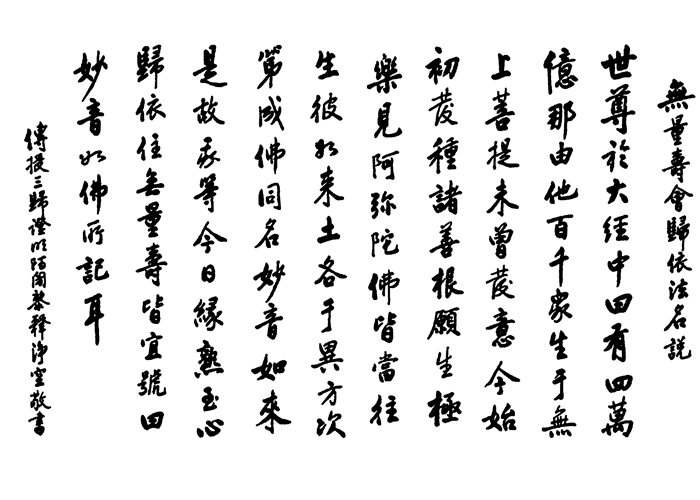 無量壽會歸依法名説
世尊於大經中曰有四萬
億那由他百千眾生于無
上菩提未曾發意今始
初發種諸善根願生極
樂見阿弥陀佛皆當往
生彼如来土各于異方次
第成佛同名妙音如來
是故我等今日緣熟至心
歸依住無量壽皆宜號曰
妙音如佛所記耳
傳授三歸證明阿闍黎釋淨空敬書